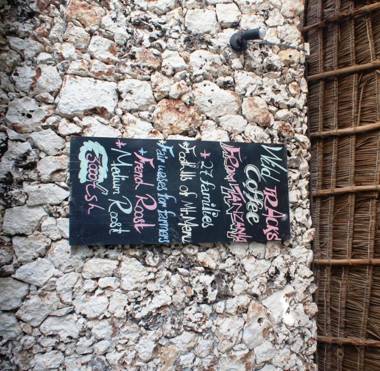 Wild TRACKS
Coffee
FROM TANZANIA
+ 27 families
Foothills of Mt. Meru
+ Fair wages for farmers
+ French Roast
+ Medium Roast
5000/sh